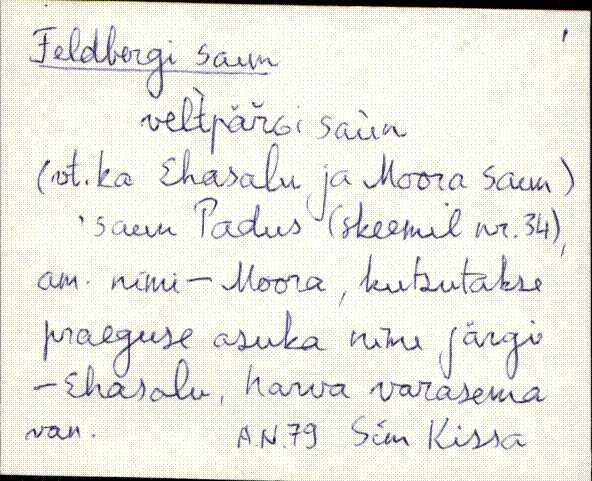 Feldbergi saun
velt̀pär̆gi saùn
(vt. ka Ehasalu ja Moora saun)
saun Padus (skeemil nr. 34),
am. nimi – Moora, kutsutakse
praeguse asuka nime järgi
– Ehasalu, harva varasema
van. A.N. 79 Sim Kissa